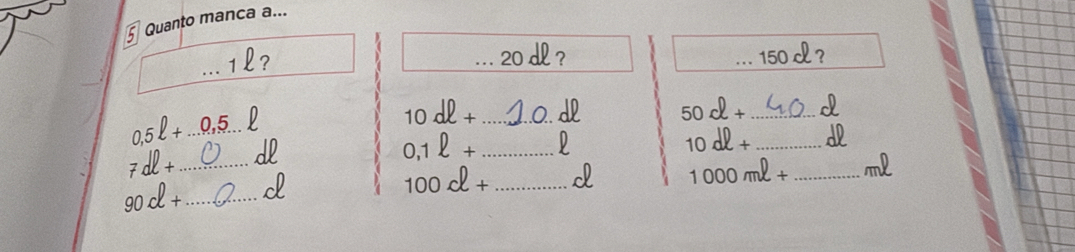 5 Quanto manca a...
... 1 l?
0,5 l + ...0,5... l
7 dl + ...0... dl
90 cl + ...0... cl
... 20 dl?
10 dl + ...10... dl
0,1 l + ............ l
100 cl + ............ cl
... 150 cl?
50 cl + ...40... cl
10 dl + ............ dl
1 000 ml + ............ ml